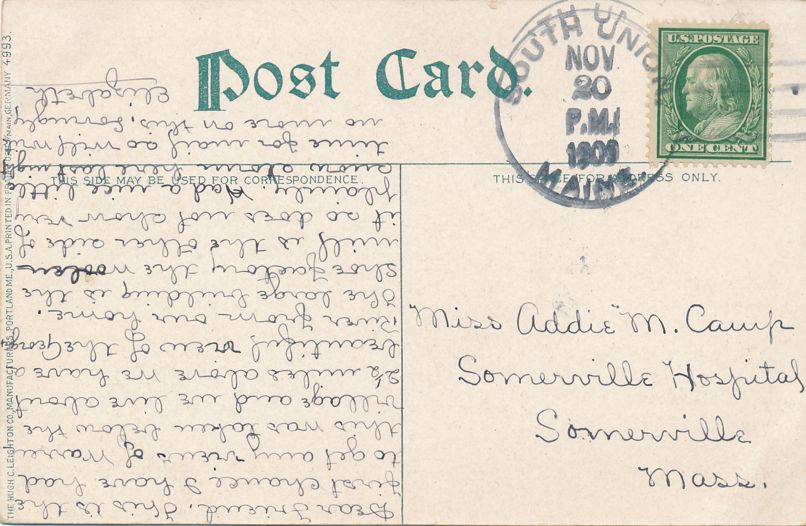 Post Card.
SOUTH UNION
NOV
20
P.M.
1909
MAINE
U.S. POSTAGE
ONE CENT
THIS SIDE MAY BE USED FOR CORRESPONDENCE.
THIS SIDE FOR ADDRESS ONLY.
Miss Addie M. Camp
Somerville Hospital
Somerville
Mass.
Dear Friend, This is the
first chance I have had
to get any views of Warren
this was taken below the
village and we live about
2½ miles above we have a
beautiful view of the Georges
River from our home.
The large building is the
shoe factory the woolen
mill is the other side of
it so does not show very
plainly. Had a nice little
snow storm here last night
time for mail so will write
no more on this, Lovingly,
Elizabeth
THE HUGH C. LEIGHTON CO., MANUFACTURERS, PORTLAND ME., U.S.A. PRINTED IN MAIN, GERMANY 4993.